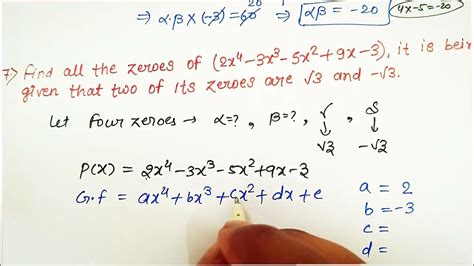 ⇒ α.β × (-3) = 60 20 ⇒ αβ = -20 4x-5=-20
7) Find all the zeroes of (2x⁴-3x³-5x²+9x-3), it is bein
given that two of its zeroes are √3 and -√3.
Let four zeroes → α=?, β=?, γ, δ
↓ ↓
√3 -√3
P(x) = 2x⁴-3x³-5x²+9x-3
G.f = ax⁴+bx³+cx²+dx+e
a = 2
b = -3
c =
d =